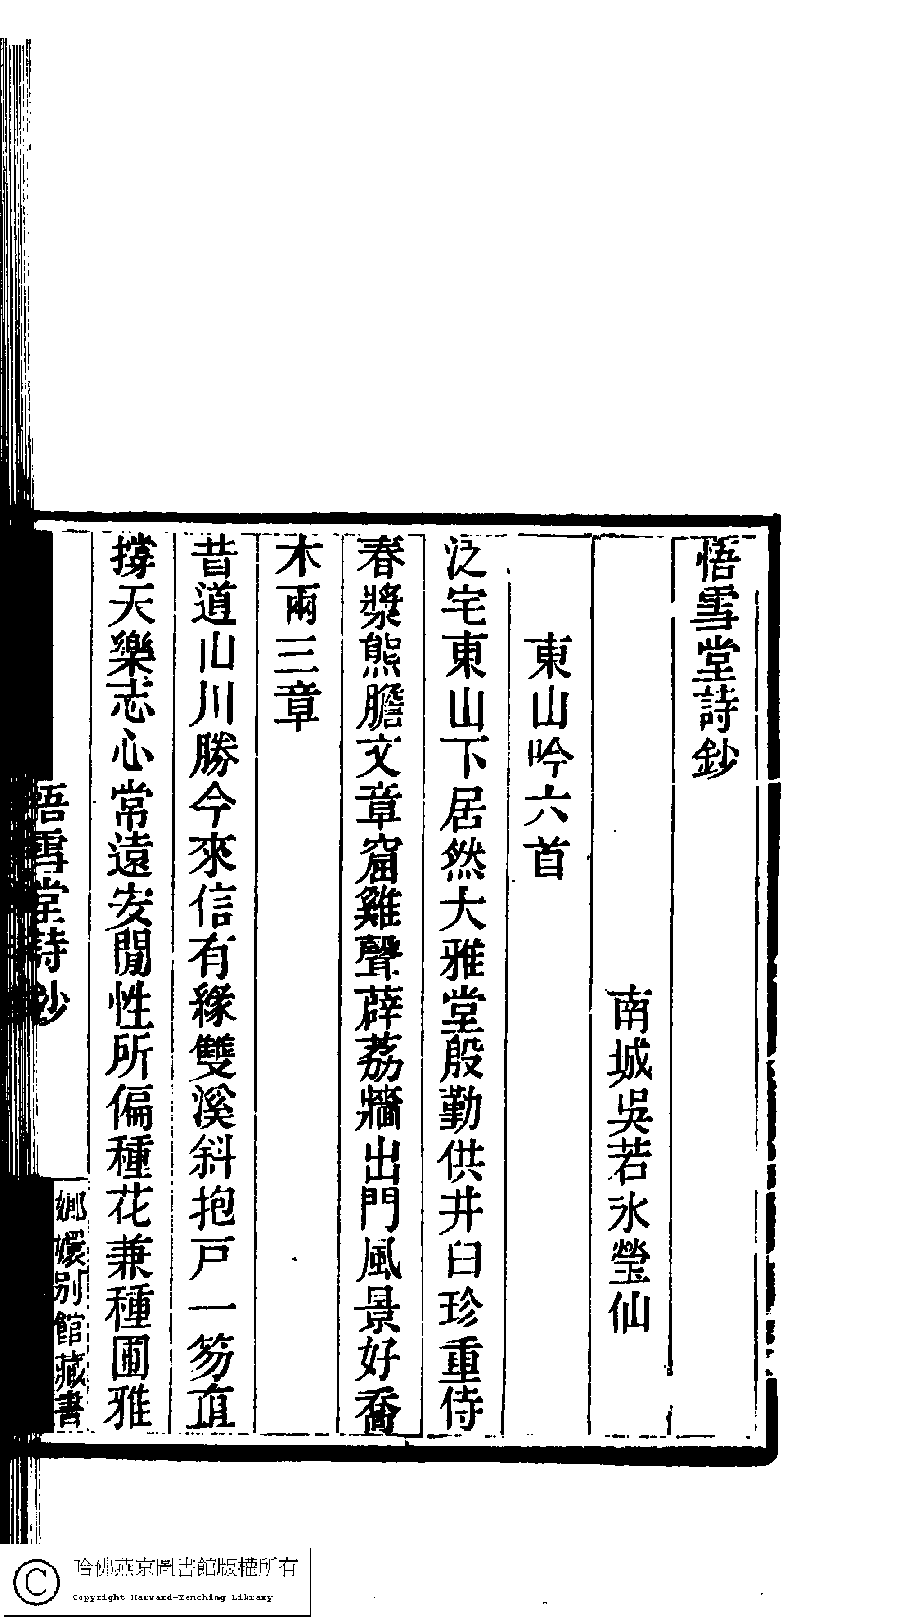 悟雪堂詩鈔
南城吳若氷瑩仙
東山吟六首
泛宅東山下居然大雅堂殷勤供井臼珍重侍
春漿熊膽文章窟雞聲薜荔牆出門風景好喬
木兩三章
昔道山川勝今來信有緣雙溪斜抱戸一笏直
撐天樂志心常遠安閒性所偏種花兼種圃雅
悟雪堂詩鈔
嫏嬛別館藏書
哈佛燕京圖書館版權所有
Copyright Harvard-Yenching Library